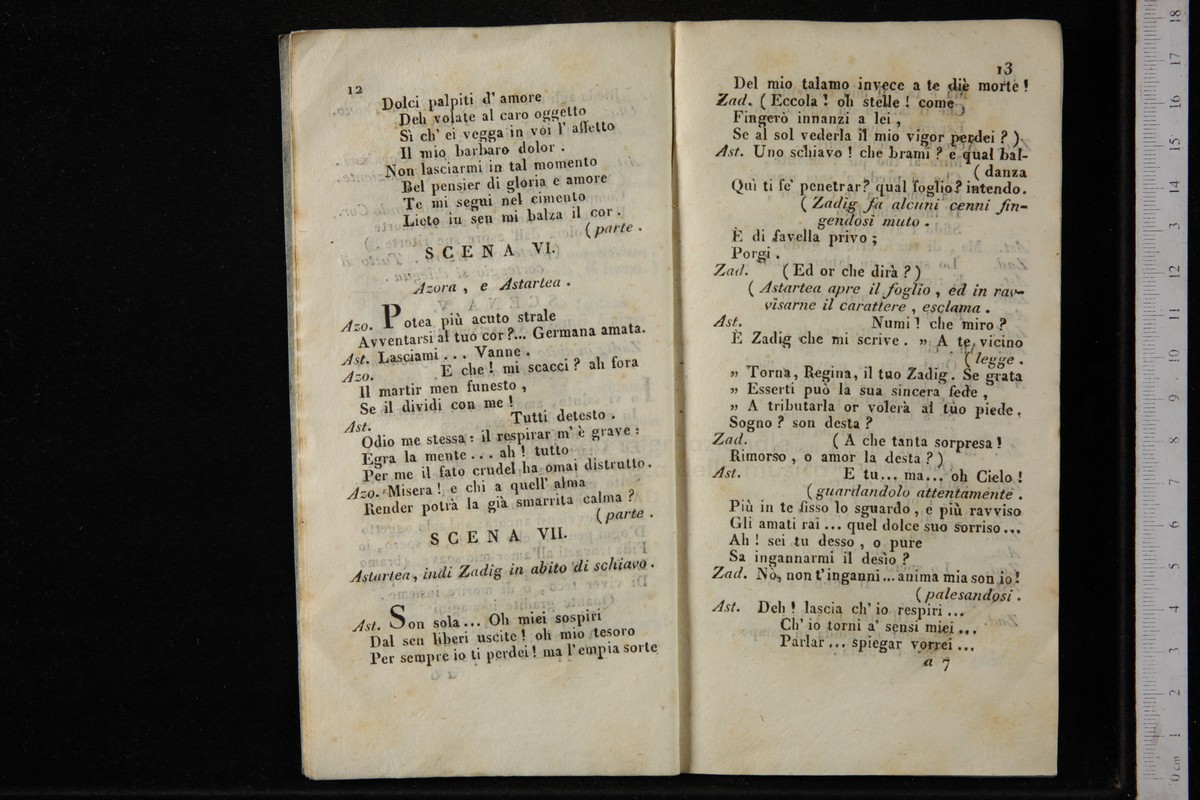 12
Dolci palpiti d' amore
Deh volate al caro oggetto
Sì ch' ei vegga in voi l' affetto
Il mio barbaro dolor .
Non lasciarmi in tal momento
Bel pensier di gloria e amore
Te mi segui nel cimento
Lieto in sen mi balza il cor .
( parte .
SCENA VI.
Azora , e Astartea .
Azo. Potea più acuto strale
Avventarsi al tuo cor ?... Germana amata.
Ast. Lasciami . . . Vanne .
Azo. E che ! mi scacci ? ah fora
Il martir men funesto ,
Se il dividi con me !
Ast. Tutti detesto .
Odio me stessa : il respirar m' è grave :
Egra la mente . . . ah ! tutto
Per me il fato crudel ha omai distrutto.
Azo. Misera ! e chi a quell' alma
Render potrà la già smarrita calma ?
( parte .
SCENA VII.
Astartea, indi Zadig in abito di schiavo .
Ast. Son sola... Oh miei sospiri
Dal sen liberi uscite ! oh mio tesoro
Per sempre io ti perdei ! ma l' empia sorte
13
Del mio talamo invece a te diè morte !
Zad. ( Eccola ! oh stelle ! come
Fingerò innanzi a lei ,
Se al sol vederla il mio vigor perdei ? )
Ast. Uno schiavo ! che brami ? e qual bal-
( danza
Quì ti fe' penetrar ? qual foglio? intendo.
( Zadig fa alcuni cenni fin-
gendosi muto .
È di favella privo ;
Porgi .
Zad. ( Ed or che dirà ? )
( Astartea apre il foglio , ed in rav-
visarne il carattere , esclama .
Ast. Numi ! che miro ?
È Zadig che mi scrive . » A te vicino
( legge .
» Torna, Regina, il tuo Zadig. Se grata
» Esserti può la sua sincera fede ,
» A tributarla or volerà al tuo piede.
Sogno ? son desta ?
Zad. ( A che tanta sorpresa !
Rimorso , o amor la desta ? )
Ast. E tu... ma... oh Cielo !
( guardandolo attentamente .
Più in te fisso lo sguardo , e più ravviso
Gli amati rai ... quel dolce suo sorriso...
Ah ! sei tu desso , o pure
Sa ingannarmi il desìo ?
Zad. Nò, non t' inganni ... anima mia son io !
( palesandosi .
Ast. Deh ! lascia ch' io respiri ...
Ch' io torni a' sensi miei ...
Parlar ... spiegar vorrei ...
a 7
18
17
16
15
14
13
12
11
10
9
8
7
6
5
4
3
2
1
0 cm